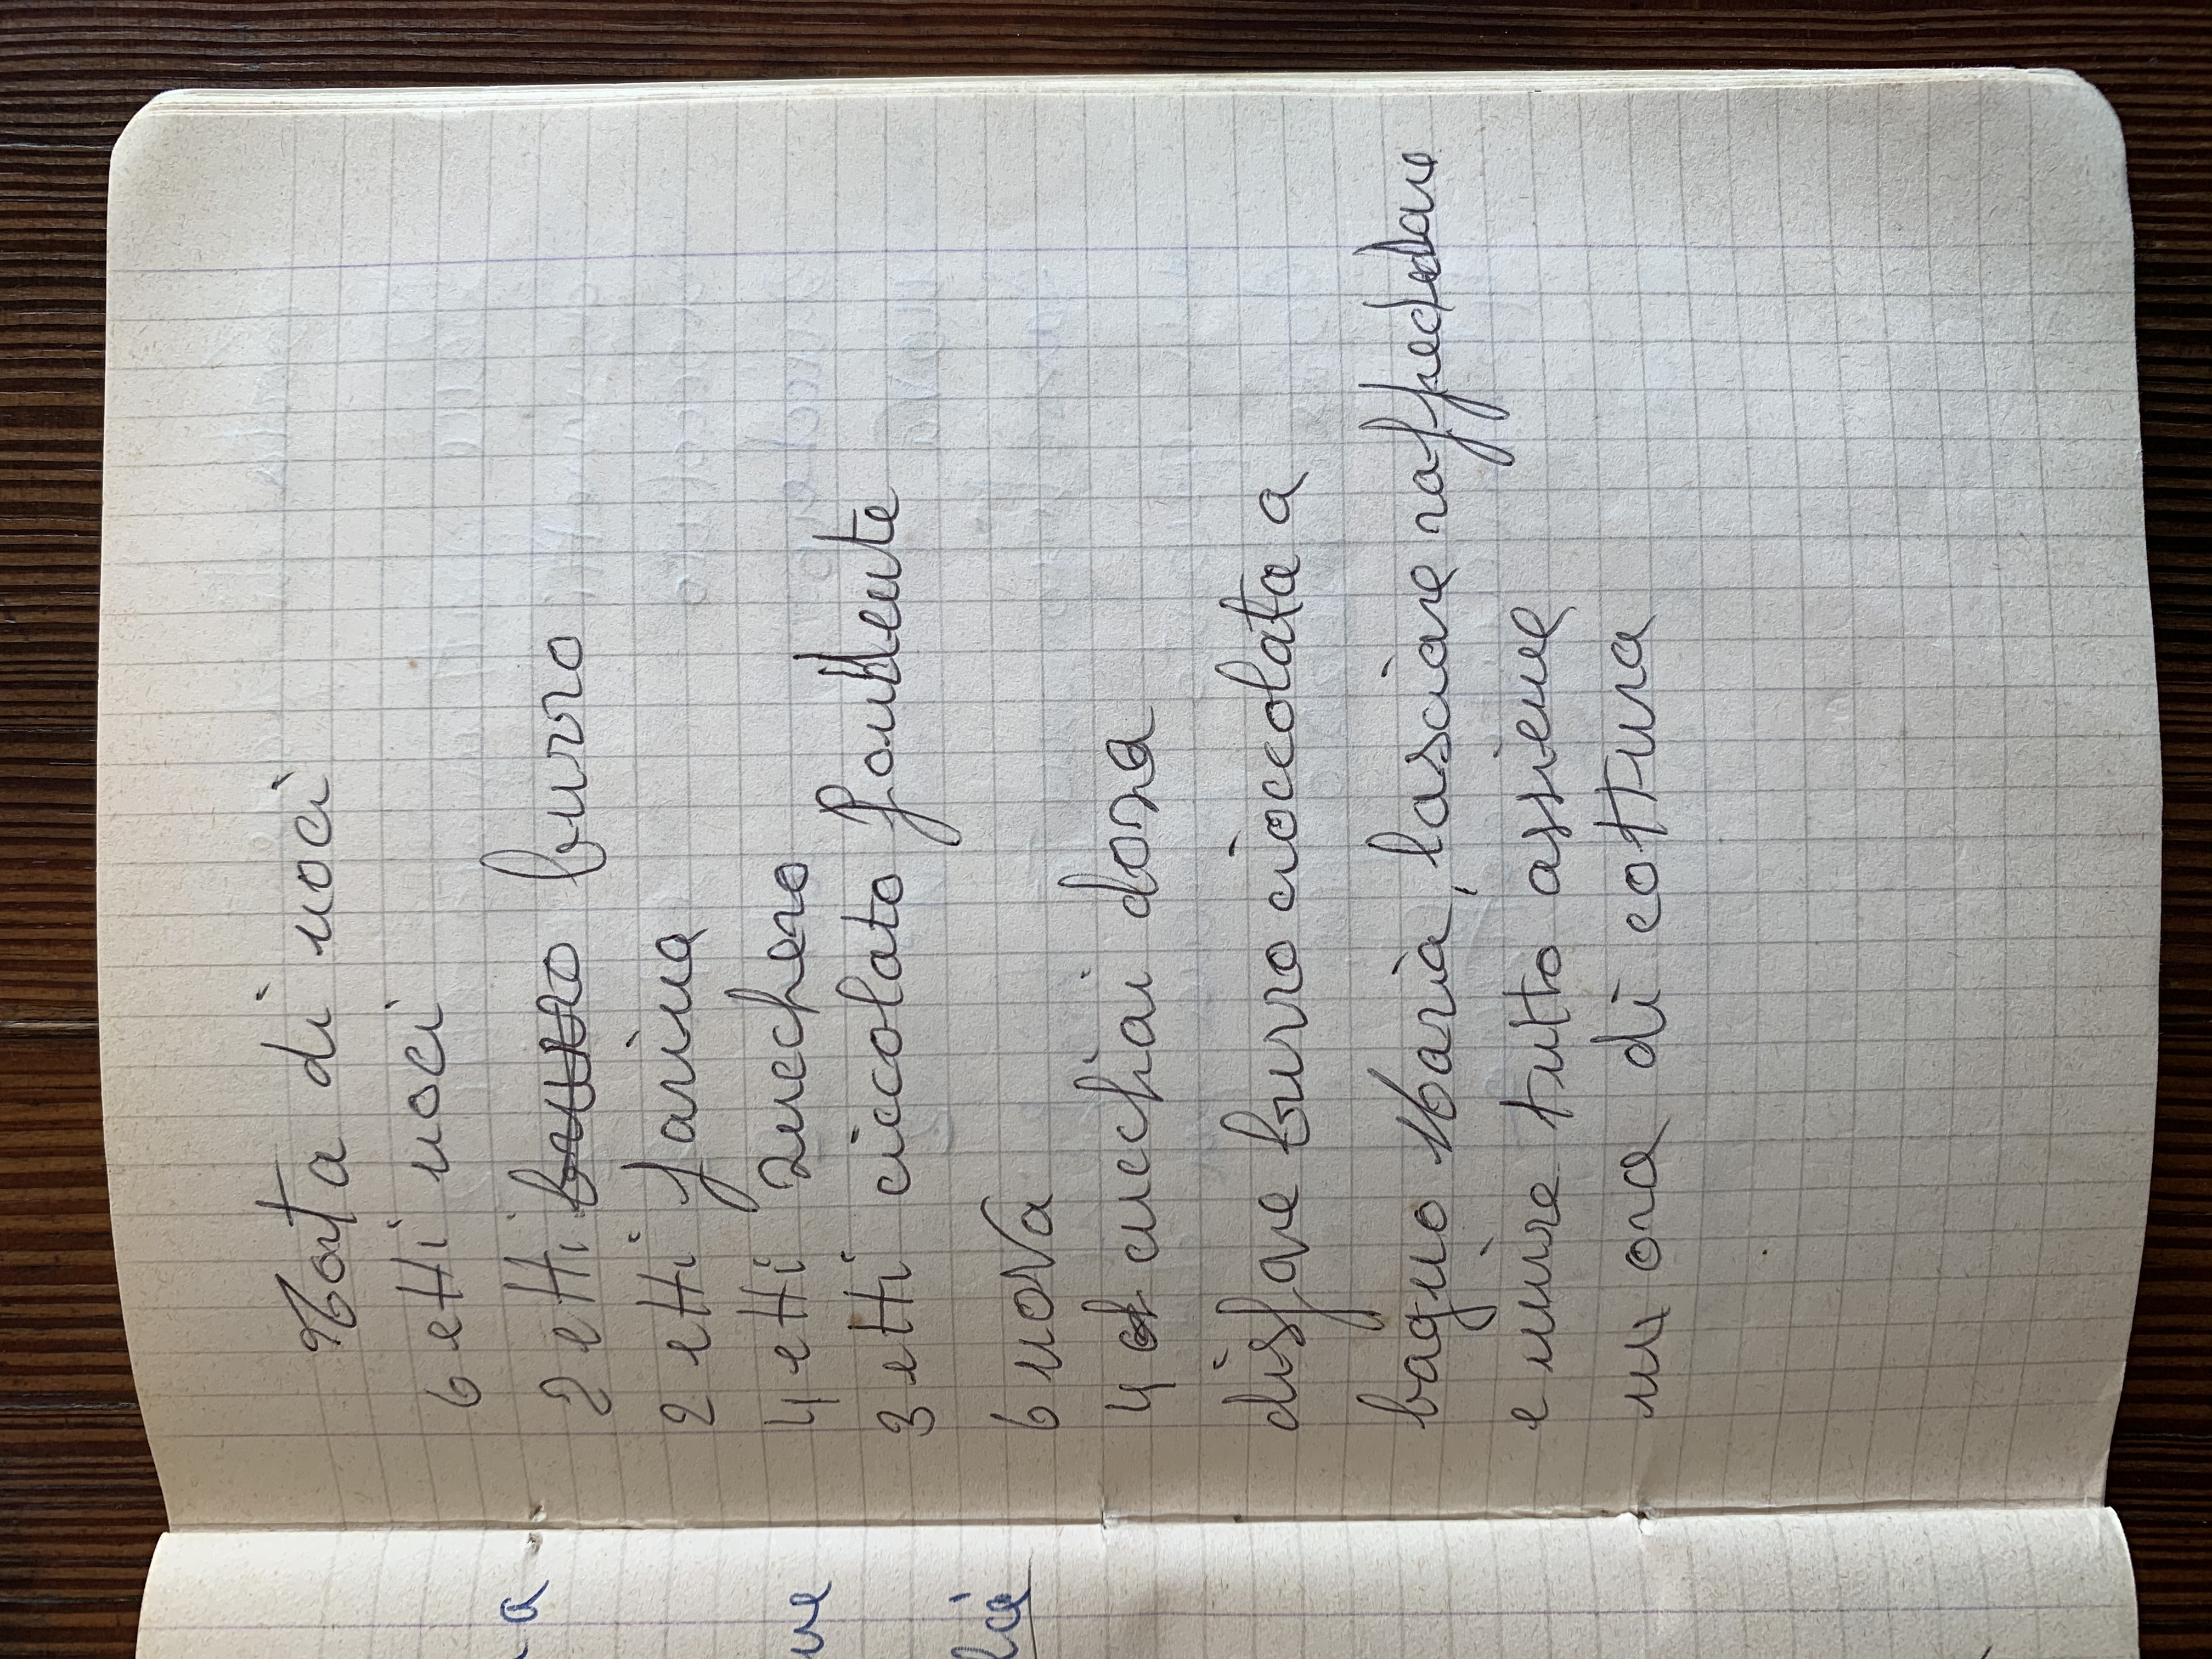 a
ve
lcè
Torta di noci
6 etti noci
2 etti brurro burro
2 etti farina
4 etti zucchero
3 etti ciccolato fondente
6 uova
4 cucchiai doza
disfare burro cioccolata a
bagno Maria, lasciare raffreddare
e unire tutto assieme
un ora di cottura